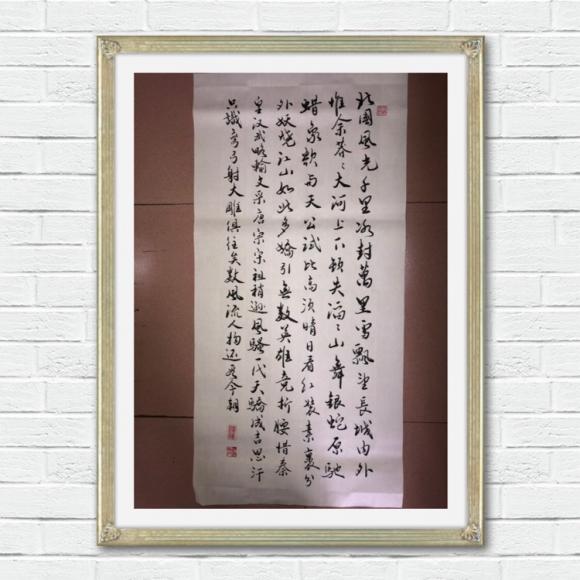 北國風光千里冰封萬里雪飄望長城内外
惟余莽々大河上下顿失滔々山舞銀蛇原馳
蜡象欲与天公試比高须晴日看红装素裹分
外妖娆江山如此多嬌引無數英雄竞折腰惜秦
皇汉武略輸文采唐宗宋祖稍逊風騷一代天驕成吉思汗
只識弯弓射大雕俱往矣數風流人物还看今朝